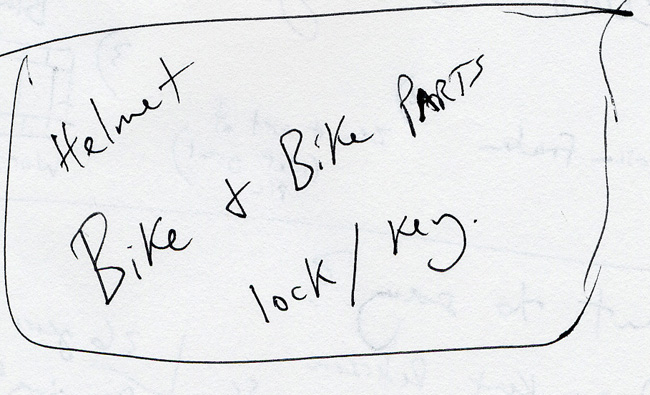 Helmet
Bike & Bike PARTS
lock / key.